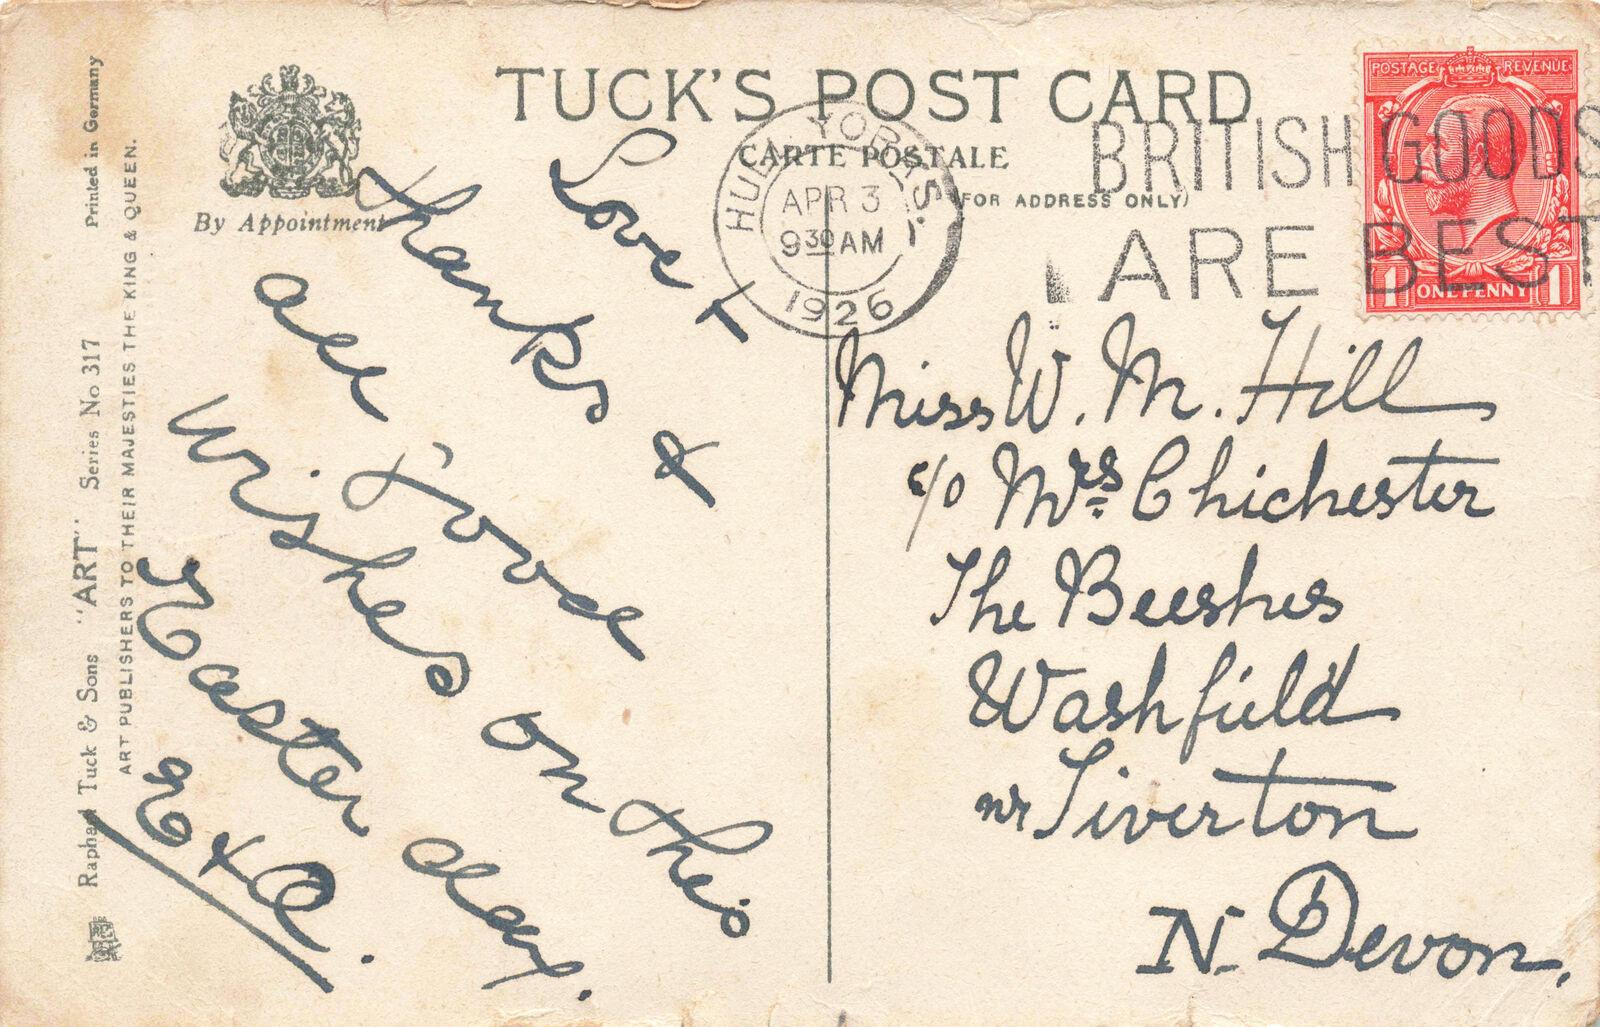 TUCK'S POST CARD
CARTE POSTALE
(FOR ADDRESS ONLY)
By Appointment
HULL. YORKS.
APR 3
9 30 AM
1926
BRITISH GOODS
ARE BEST
POSTAGE REVENUE
1 ONE PENNY 1
Love +
Thanks &
all good
wishes on this
Easter day.
E + A.
Miss W. M. Hill
c/o Mrs. Chichester
The Beeshes
Washfield
nr Tiverton
N. Devon.
Raphael Tuck & Sons "ART" Series No 317 Printed in Germany
ART PUBLISHERS TO THEIR MAJESTIES THE KING & QUEEN.